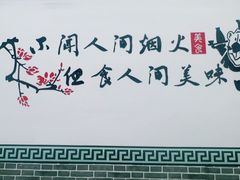 不闻人间烟火
美食
但食人间美味